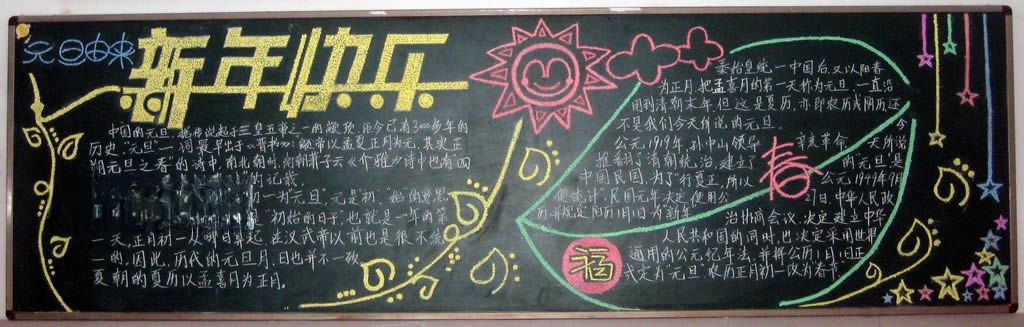 元旦由来
新年快乐
中国的元旦,据传说起于三皇五帝之一的颛顼,距今已有3000多年的
历史."元旦"一词最早出于《晋书》:颛帝以孟夏正月为元,其实正
朔元旦之春"的诗中.南北朝时,南朝萧子云《介雅》诗中也有"四
"的记载
初一为"元旦",元是初、"始的意思
是"初始的日子"也就是一年的第
一天,正月初一从哪日算起,在汉武帝以前也是很不统
一的,因此,历代的元旦月、日也并不一致
夏朝的夏历以孟喜月为正月.
秦始皇统一中国后,又以阳春
为正月.把孟喜月的第一天称为元旦,一直沿
用到清朝末年.但这是夏历,亦即农历或阴历还
不是我们今天所说的元旦.
公元1919年,孙中山领导
推翻了清朝统治,建立了
中国民国,为了"行夏正,所以
便统计",民国元年决定使用公
历并规定阳历1月1日为新年
春
辛亥革命
今
天所说
的"元旦"是
公元1949年9月
27日,中华人民政
治协商会议,决定建立中华
人民共和国的同时,也决定采用世界
通用的公元纪年法,并将公历1月1日正
式定为"元旦"农历正月初一改为春节
福